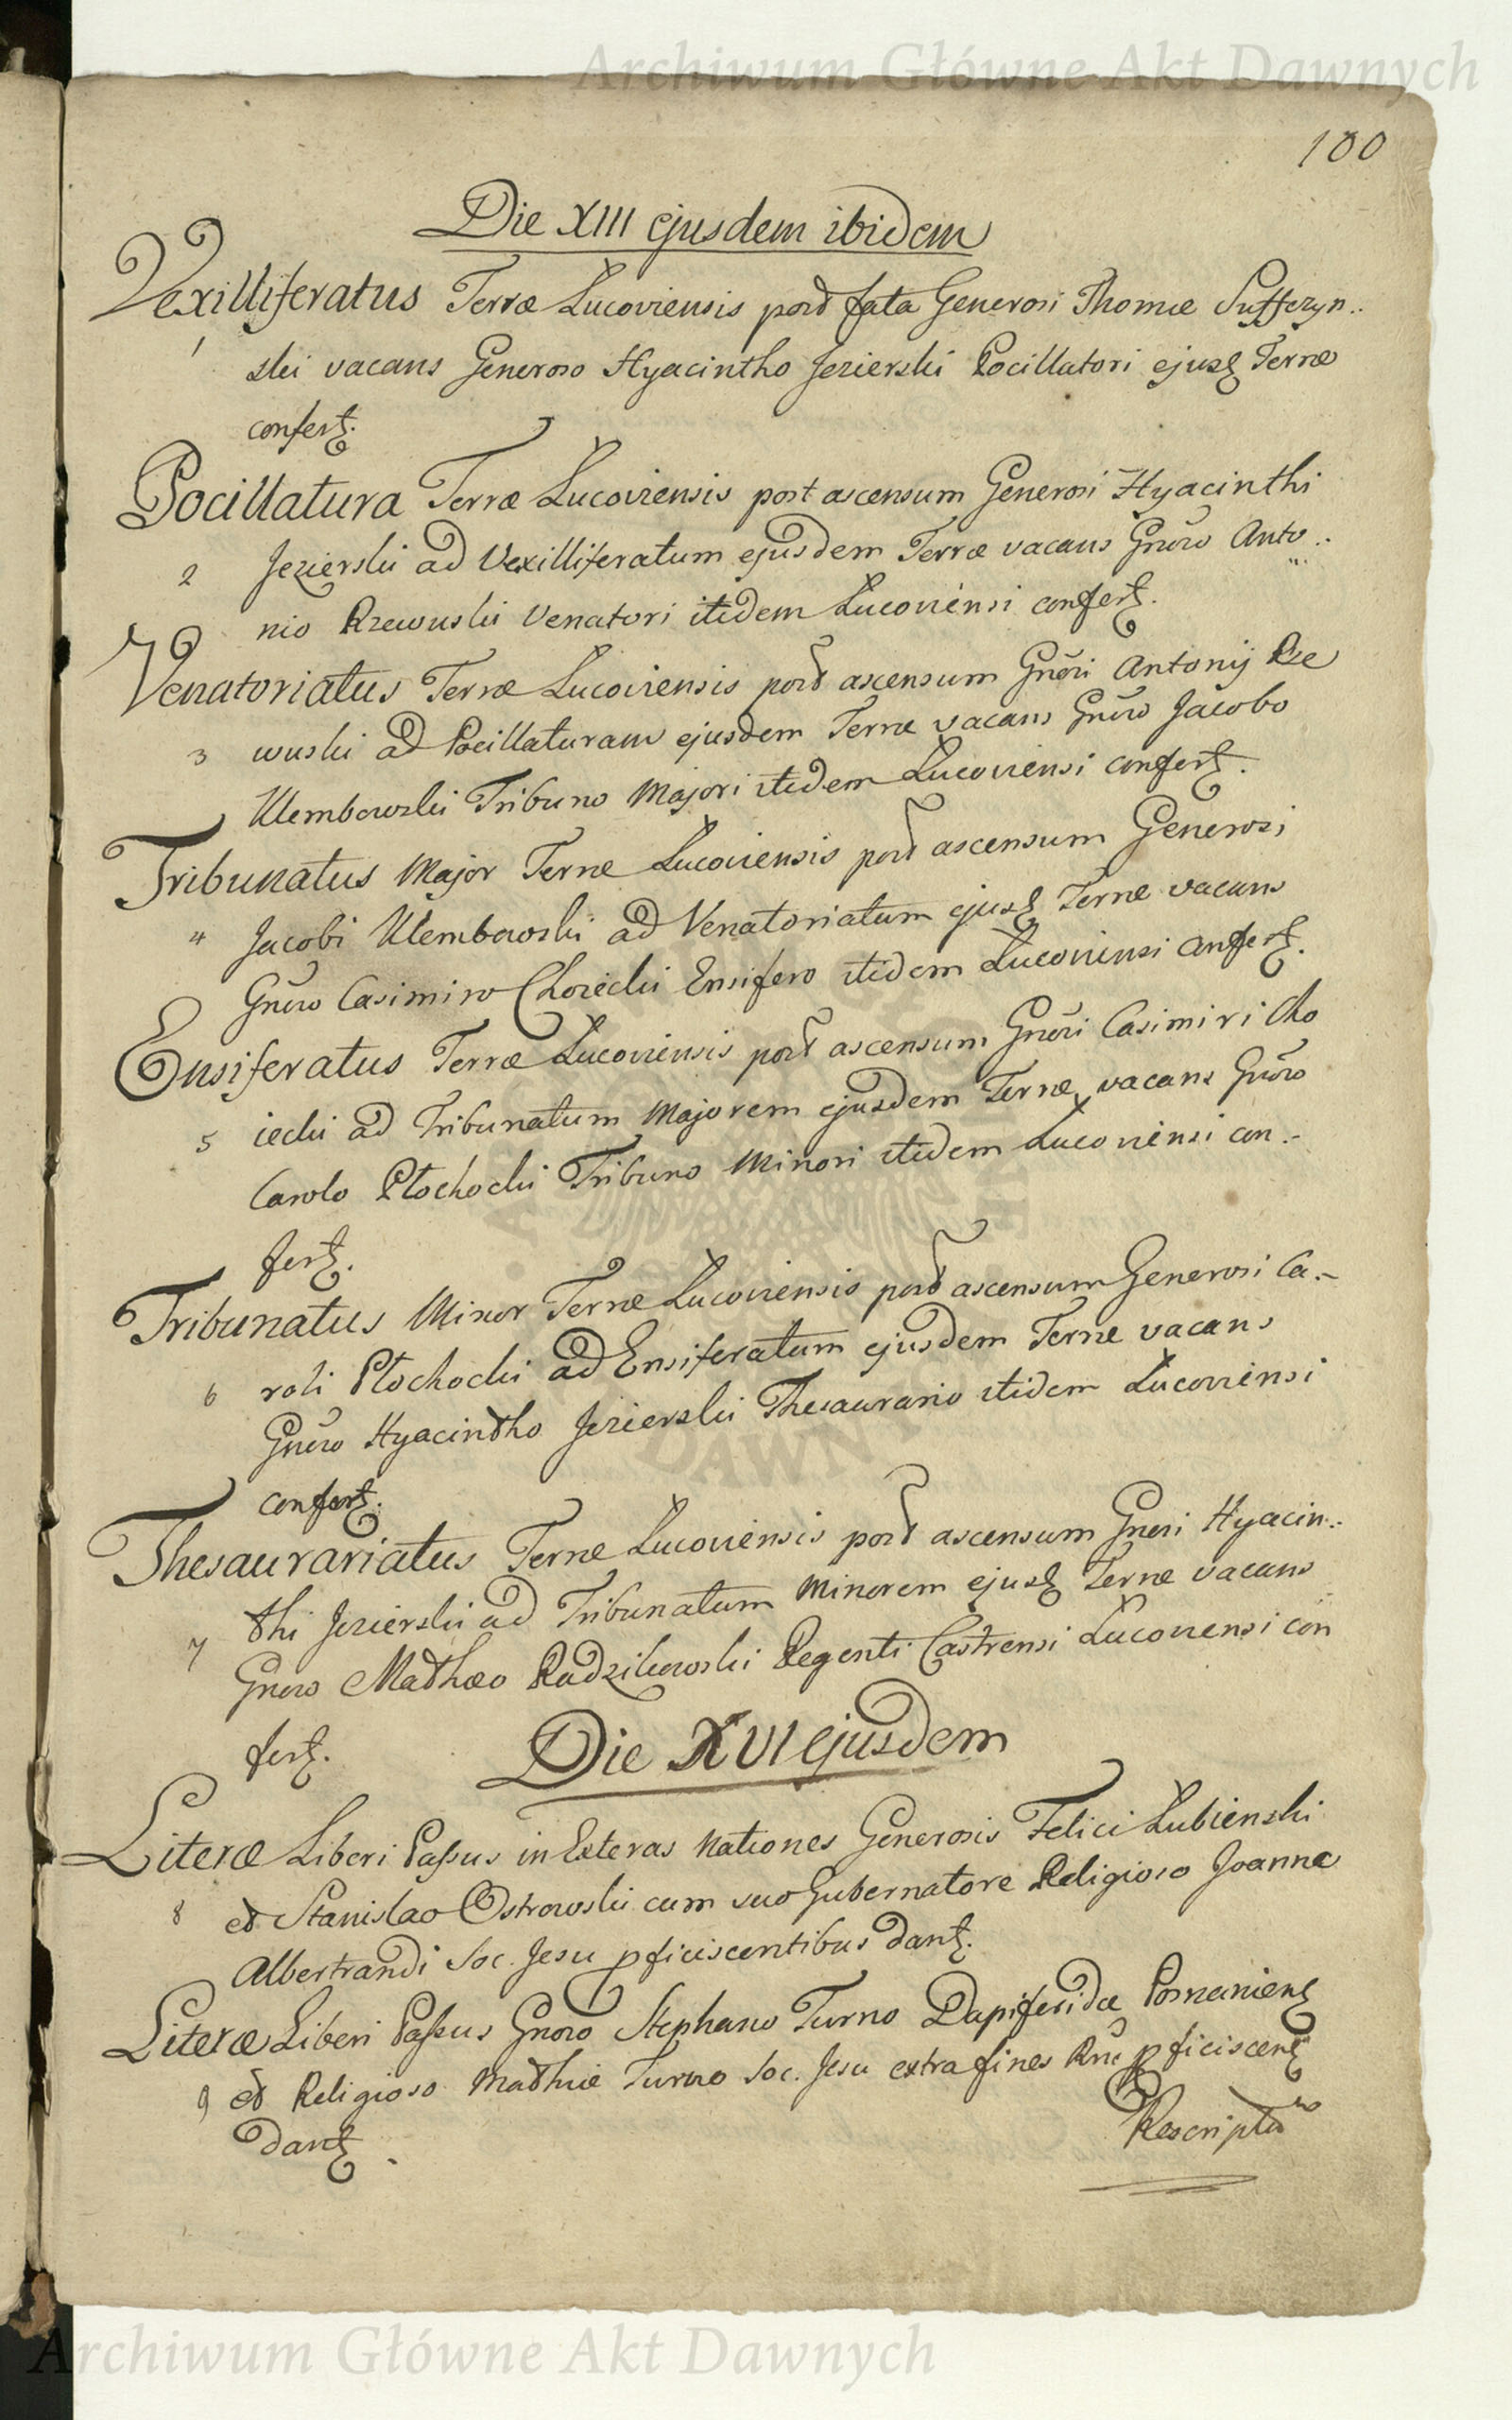 Archiwum Główne Akt Dawnych
100
Die XIII ejusdem ibidem
Vexilliferatus Terræ Lucoviensis post fata Generosi Thomæ Suffczyn..
1 ski vacans Generoso Hyacintho Jezierski Pocillatori ejusꝫ Terræ
confertꝫ.
Pocillatura Terræ Lucoviensis post ascensum Generosi Hyacinthi
2 Jezierski ad Vexilliferatum ejusdem Terræ vacans Gnõro Anto..
nio Rzewuski Venatori itidem Lucoviensi confertꝫ.
Venatoriatus Terræ Lucoviensis post ascensum Gnõri Antonij Rze
3 wuski ad Pocillaturam ejusdem Terræ vacans Gnõro Jacobo
Klembowski Tribuno Majori itidem Lucoviensi confertꝫ.
Tribunatus Major Terræ Lucoviensis post ascensum Generosi
4 Jacobi Klembowski ad Venatoriatum ejusꝫ Terræ vacans
Gnõro Casimiro Choiecki Ensifero itidem Lucoviensi confertꝫ.
Ensiferatus Terræ Lucoviensis post ascensum Gnõri Casimiri Cho
5 iecki ad Tribunatum Majorem ejusdem Terræ vacans Gnõro
Carolo Płochocki Tribuno Minori itidem Lucoviensi con..
fertꝫ.
Tribunatus Minor Terræ Lucoviensis post ascensum Generosi Ca..
6 roli Płochocki ad Ensiferatum ejusdem Terræ vacans
Gnõro Hyacintho Jezierski Thesaurario itidem Lucoviensi
confertꝫ.
Thesaurariatus Terræ Lucoviensis post ascensum Gneri Hyacin..
7 thi Jezierski ad Tribunatum Minorem ejusꝫ Terræ vacans
Gnoro Mathæo Radzikowski Regenti Castrensi Lucoviensi con
fertꝫ.
Die XVI ejusdem
Literæ Liberi Passus in Exteras Nationes Generosis Felici Łubienski
8 et Stanislao Ostrowski cum suo Gubernatore Religioso Joanne
Albertrandi Soc. Jesu pficiscentibus dantꝫ.
Literæ Liberi Passus Gnoro Stephano Turno Dapiferidæ Posnanienꝫ
9 et Religioso Mathiæ Turno Soc. Jesu extra fines Rñi pficiscenꝫ
dantꝫ.
Rescripta
Archiwum Główne Akt Dawnych